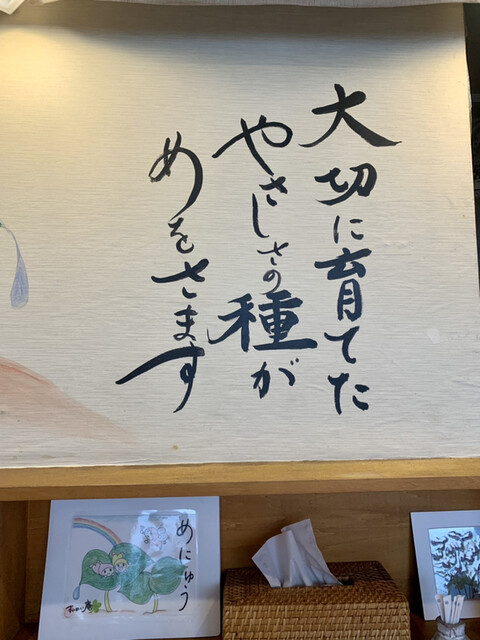 大切に育てた
やさしさの種が
めをさます
めにゅう